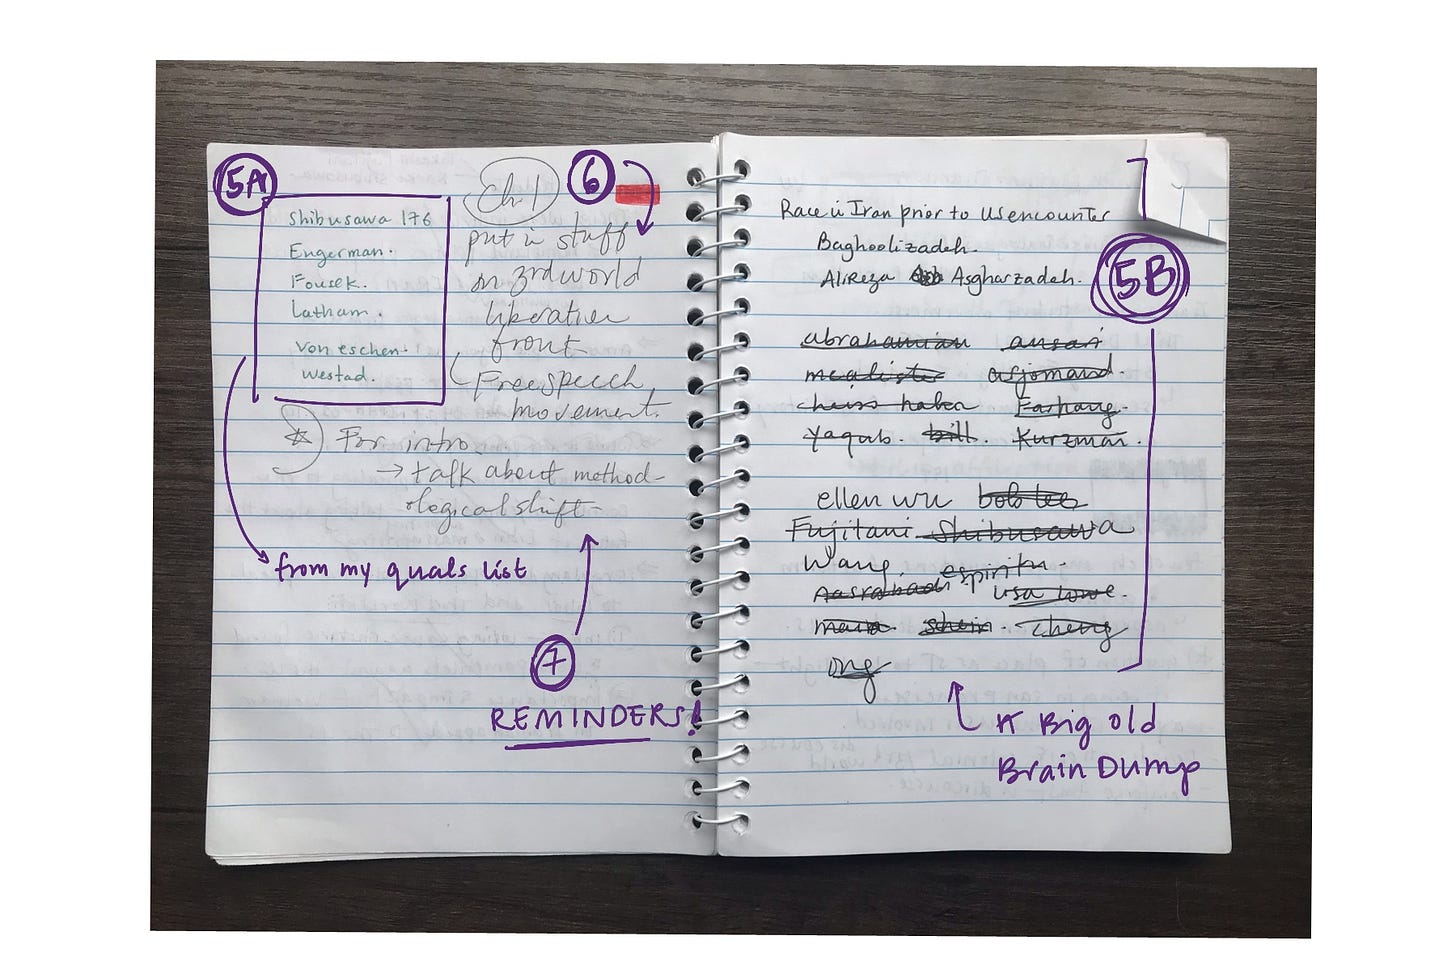 5A
Shibusawa 176
Engerman.
Fousek.
Latham.
Von eschen.
Westad.
Ch. 1
6
put in stuff
on 3rd world
liberation
front
Free speech
movement.
For intro
→ talk about method-
ological shift-
from my quals list
7
REMINDERS!
Race in Iran prior to US encounter
Baghoolizadeh.
Alireza Asgharzadeh.
5B
abrahamian ansari
arjomand.
Farhang.
Yaqub. bill. Kurzman.
ellen wu bob lee
Fujitani Shibusawa
Wang. espiritu.
Aasrabadi lisa lowe.
shein. cheng
ong
A Big Old
Brain Dump